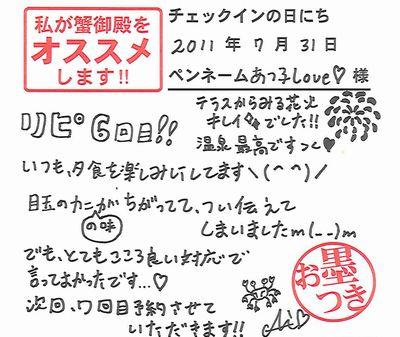 私が蟹御殿を
オススメ
します!!
チェックインの日にち
2011 年 7 月 31 日
ペンネーム あっ子Love♡ 様
テラスからみる花火
キレイでした!!
温泉最高ですっ♡
リピ6回目!!
いつも、夕食を楽しみにしてます＼(^^)／
目玉のカニがちがってて、つい伝えて
の味
しまいましたm(--)m
でも、とてもこころ良い対応で
言ってよかったです…♡
次回、7回目予約させて
いただきます!!
お墨つき